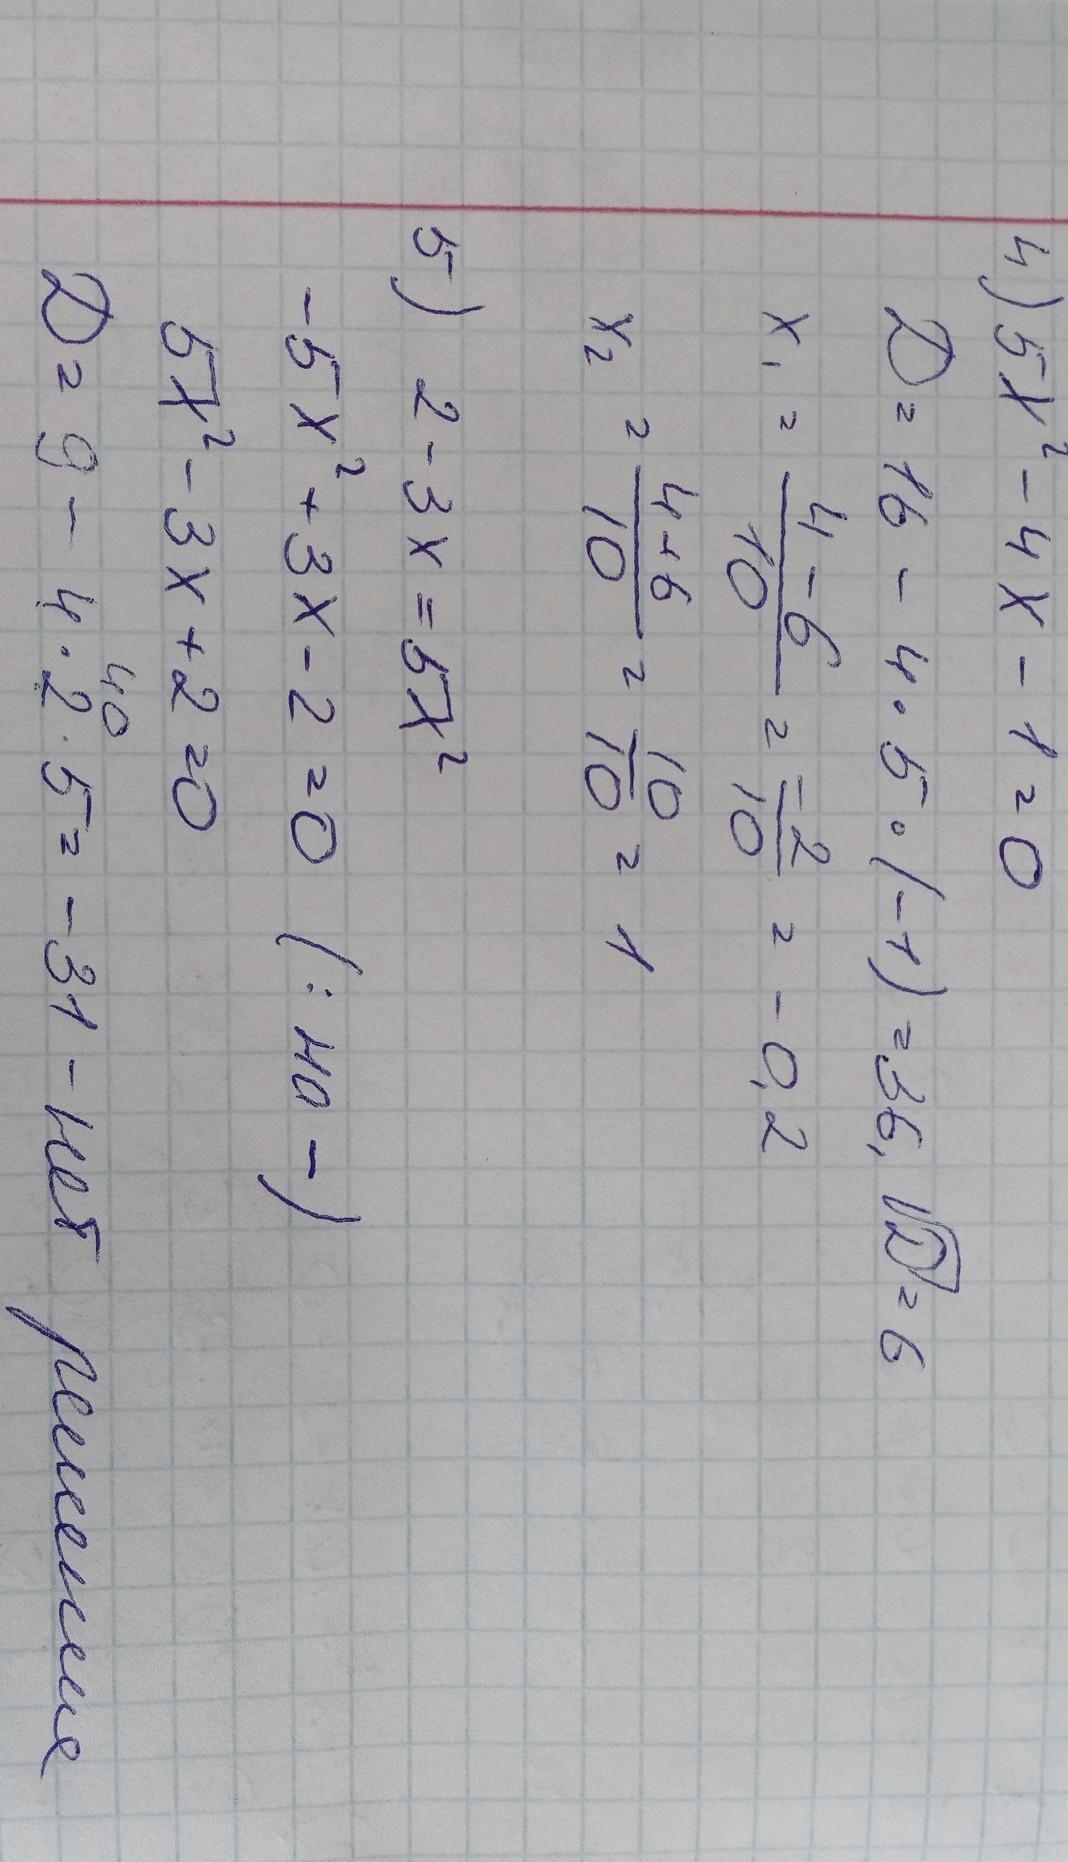 4) 5x² - 4x - 1 = 0
D = 16 - 4 · 5 · (-1) = 36, √D = 6
x₁ = (4 - 6)/10 = -2/10 = -0,2
x₂ = (4 + 6)/10 = 10/10 = 1
5) 2 - 3x = 5x²
-5x² + 3x - 2 = 0 (: на -)
5x² - 3x + 2 = 0
40
D = 9 - 4 · 2 · 5 = -31 - нет решения